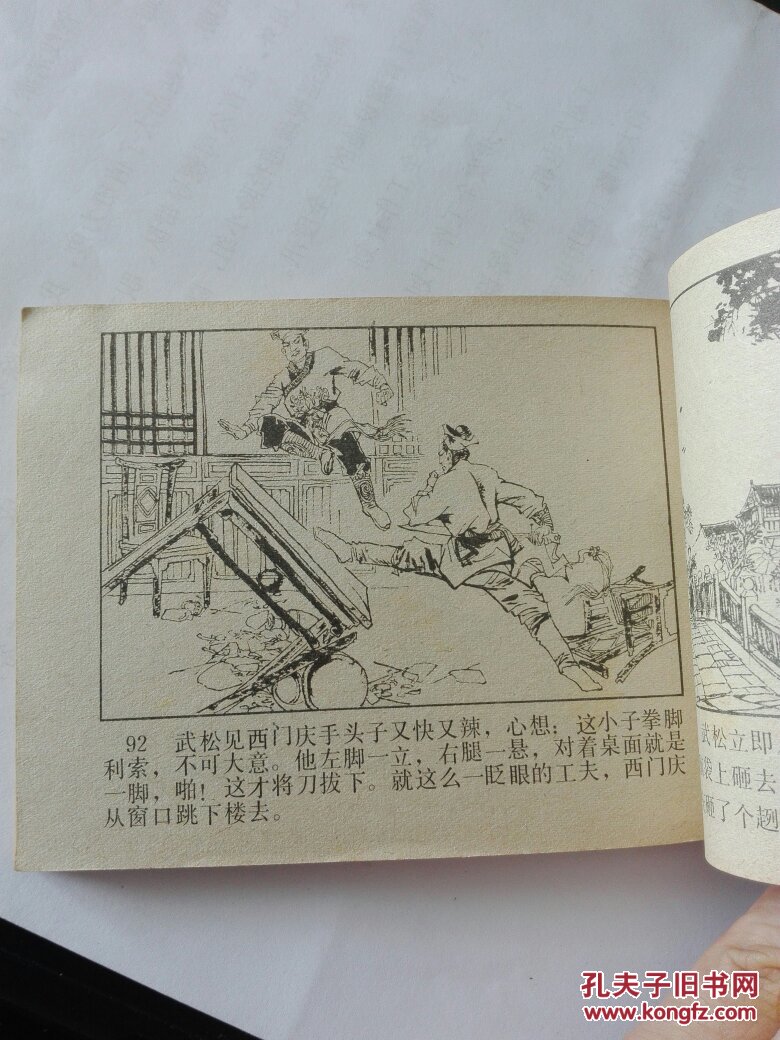 92 武松见西门庆手头子又快又辣，心想：这小子拳脚
利索，不可大意。他左脚一立，右腿一悬，对着桌面就是
一脚，啪！这才将刀拔下。就这么一眨眼的工夫，西门庆
从窗口跳下楼去。
武松立即
上砸去
砸了个趔
孔夫子旧书网
www.kongfz.com